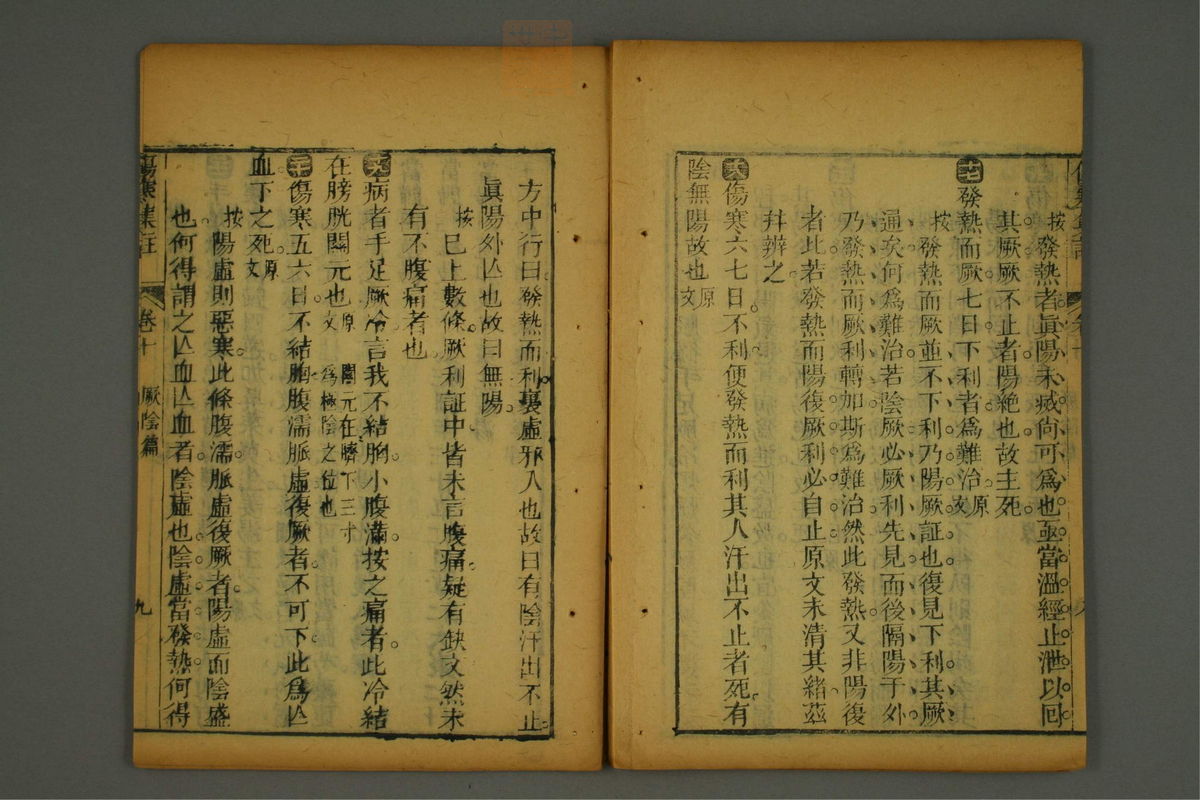 按發熱者眞陽未㓕尙可爲也亟當溫經止泄以囘
其厥厥不止者陽絶也故主死
十七發熱而厥七日下利者爲難治原文
按發熱而厥並不下利乃陽厥証也復見下利其厥
逼矣何爲難治若陰厥必厥利先見而後隔陽于外
乃發熱而厥利轉加斯爲難治然此發熱又非陽復
者比若發熱而陽復厥利必自止原文未清其緒茲
幷辨之
十八傷寒六七日不利便發熱而利其人汗出不止者死有
陰無陽故也原文
方中行曰發熱而利裏虛邪入也故曰有陰汗出不止
眞陽外亾也故曰無陽
按巳上數條厥利証中皆未言腹痛疑有缺文然未
有不腹痛者也
十九病者手足厥冷言我不結胸小腹滿按之痛者此冷結
在膀胱關元也原文 關元在臍下三寸爲極陰之位也
二十傷寒五六日不結胸腹濡脈虛復厥者不可下此爲亾
血下之死原文
按陽虛則惡寒此條腹濡脈虛復厥者陽虛而陰盛
也何得謂之亾血亾血者陰虛也陰虛當發熱何得
傷寒集註 卷十 厥陰篇 九